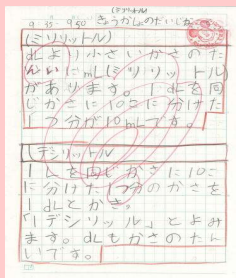 9 35 9 50 きょうかしょのたいじな
(ミリリットル)
dLより小さいかさのた
んいにmL(ミリリットル)
があります。1dLを同
じかさに10こに分けた
1つ分が10mLです。
(デシリットル)
1Lを同じかさに10こ
に分けた1つ分のかさを
1dLとかき。
「1デシリットル」とよみ
ます。dLもかさのたん
いです。